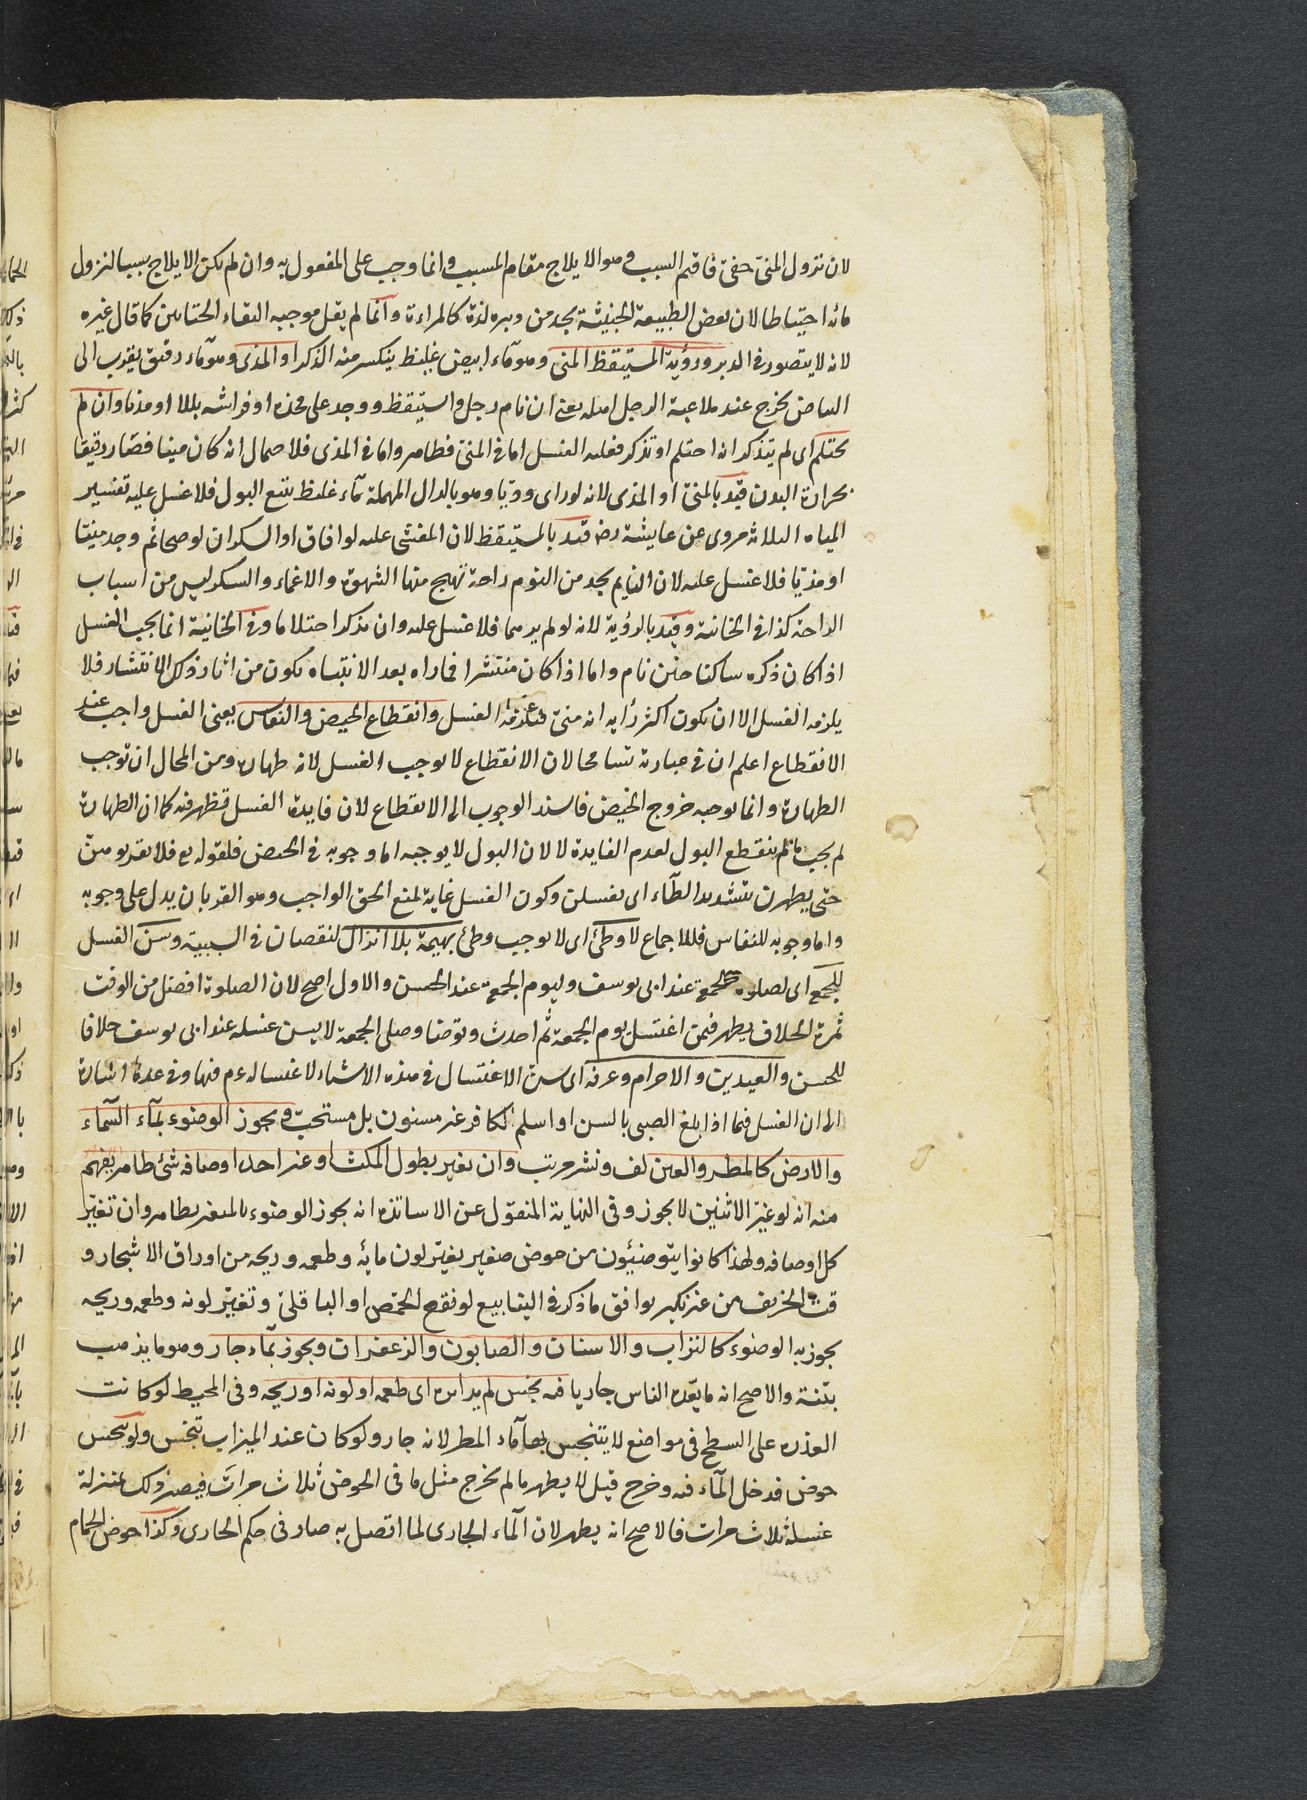 لان نزول المنى خفى فاقيم السبب وهو الايلاج مقام المسبب وانما وجب على المفعول به وان لم يكن الايلاج سببا لنزول
مائه احتياطا لان بعض الطبيعة الخبيثة يجد من دبره لذة كالمراءة وانما لم يقل موجبه التقاء الختانين كما قال غيره
لانه لا يتصور فى الدبر ورؤية المستيقظ المنى وهو ماء ابيض غليظ ينكسر منه الذكر او المذى وهو ماء رقيق يقرب الى
البياض يخرج عند ملاعبة الرجل اهله يعنى ان نام رجل واستيقظ ووجد على فخذه او فراشه بللا او مذيا وان لم
يحتلم اى لم يتذكر انه احتلم او تذكر فعليه الغسل اما فى المنى فظاهر واما فى المذى فلاحتمال انه كان منيا فصار رقيقا
بحرارة البدن قيد بالمنى او المذى لانه لو راى وديا وهو بالدال المهملة ماء غليظ يتبع البول فلا غسل عليه تفسير
المياه الثلاثة مروى عن عايشة رضـ قيد بالمستيقظ لان المغشى عليه لو افاق او السكران لو صحا ثم وجد منيا
او مذيا فلا غسل عليه لان النايم يجد من النوم راحة تهيج منها الشهوة والاغماء والسكر ليس من اسباب
الراحة كذا فى الخانية وقيد بالرؤية لانه لو لم يرهما فلا غسل عليه وان تذكر احتلاما وفى الخانية انما يجب الغسل
اذا كان ذكره ساكنا حين نام واما اذا كان منتشرا فما راه بعد الانتباه يكون من اثار ذلك الانتشار فلا
يلزمه الغسل الا ان يكون اكثر رأيه انه منى فيلزمه الغسل وانقطاع الحيض والنفاس يعنى الغسل واجب عند
الانقطاع اعلم ان فى عبارته تسامحا لان الانقطاع لا يوجب الغسل لانه طهارة ومن المحال ان توجب
الطهارة وانما يوجبه خروج الحيض فاسند الوجوب الى الانقطاع لان فايدة الغسل تظهر فيه كما ان الطهارة
لم يجب ما لم ينقطع البول لعدم الفايدة لا لان البول لا يوجبه اما وجوبه فى الحيض فلقوله تع فلا تقربوهن
حتى يطهرن بتشديد الطاء اى يغتسلن وكون الغسل غاية لمنع الحق الواجب وهو القربان يدل على وجوبه
واما وجوبه للنفاس فللاجماع لا وطئ اى لا يوجب وطئ بهيمة بلا انزال لنقصان فى السببية وسن الغسل
للجمعة اى لصلوة الجمعة عند ابى يوسف وليوم الجمعة عند الحسن والاول اصح لان الصلوة افضل من الوقت
ثمرة الخلاف يظهر فيمن اغتسل يوم الجمعة ثم احدث وتوضأ وصلى الجمعة لا يسن غسله عند ابى يوسف خلافا
للحسن والعيدين والاحرام وعرفة اى سن الاغتسال فى هذه الاشياء لاغتساله عم فيها وفى عدها اشارة
الى ان الغسل فيما اذا بلغ الصبى بالسن او اسلم الكافر غير مسنون بل مستحب ويجوز الوضوء بماء السماء
والارض كالمطر والعين لف ونشر مرتب وان تغير بطول المكث او غير احد اوصافه شئ طاهر يفهم
منه انه لو غير الاثنين لا يجوز وفى النهاية المنقول عن الاساتذة انه يجوز الوضوء بالمتغير بطاهر وان تغير
كل اوصافه ولهذا كانوا يتوضئون من حوض صغير تغير لون مائه وطعمه وريحه من اوراق الاشجار و
قت الخريف من غير نكير يوافق ما ذكر فى الينابيع لو نقع الحمص او الباقلى وتغير لونه وطعمه وريحه
يجوز به الوضوء كالتراب والاشنان والصابون والزعفران ويجوز بماء جار وهو ما يذهب
بتبنة والاصح انه ما يعده الناس جاريا فيه نجس لم ير اثره اى طعمه او لونه او ريحه وفى المحيط لو كانت
العذرة على السطح فى مواضع لا يتنجس بها ماء المطر لانه جار ولو كان عند الميزاب تنجس ولو تنجس
حوض فدخل الماء فيه وخرج قيل لا يطهر ما لم يخرج مثل ما فى الحوض ثلاث مرات فيصير ذلك بمنزلة
غسله ثلاث مرات فالاصح انه يطهر لان الماء الجارى لما اتصل به صار فى حكم الجارى وكذا حوض الحمام